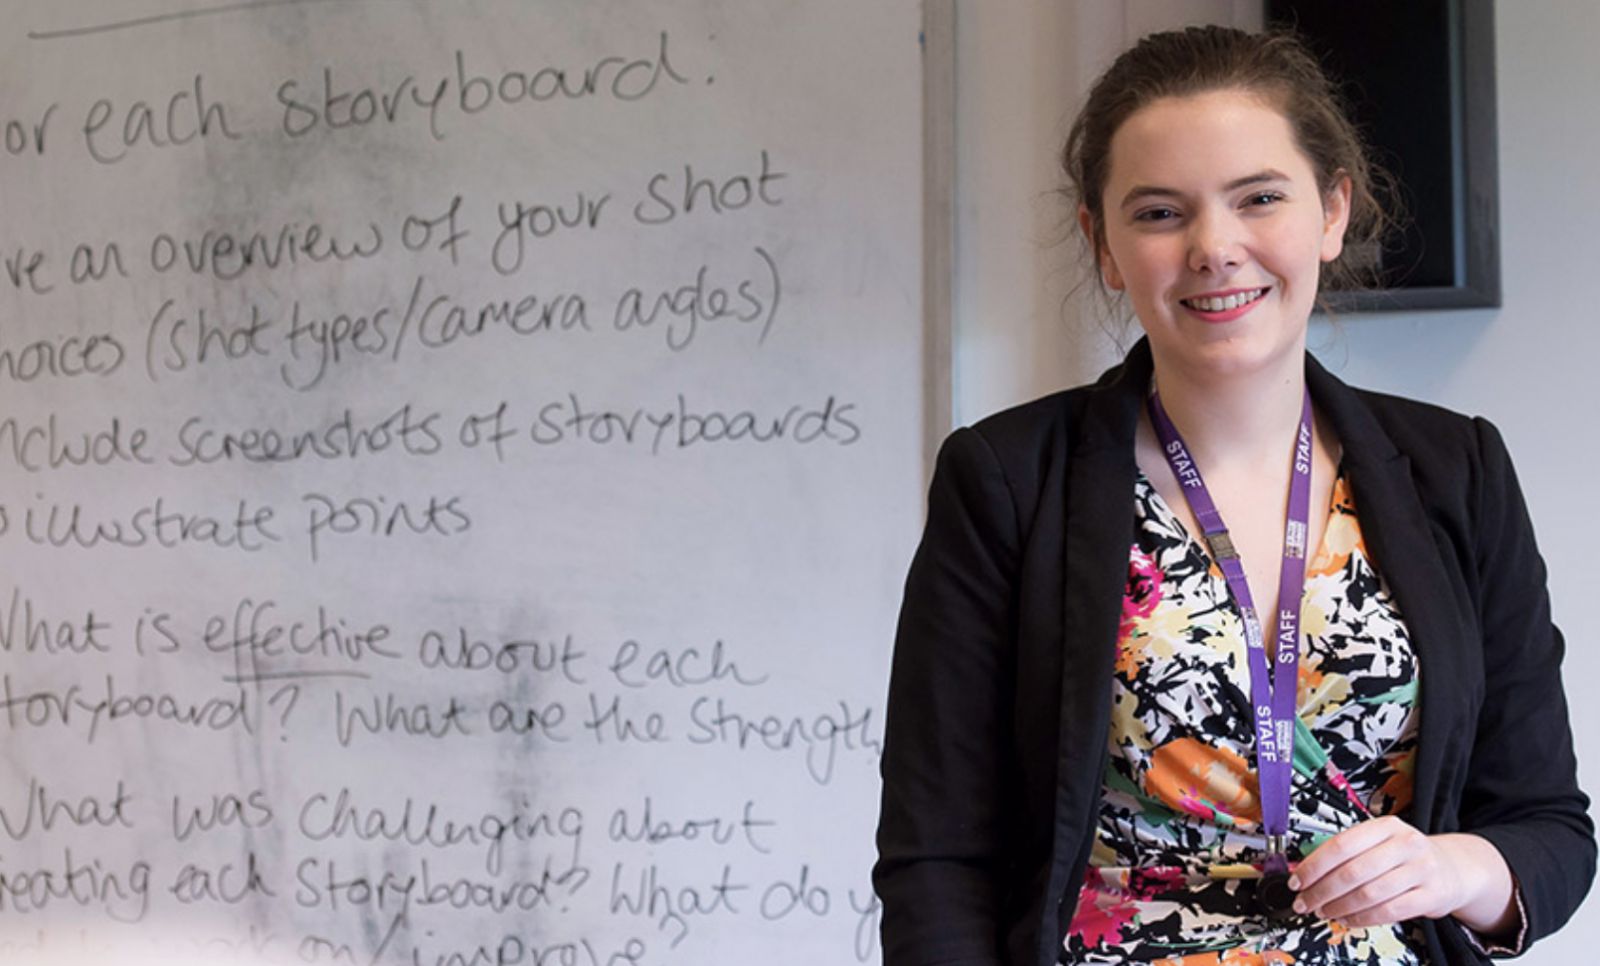 or each Storyboard:
ve an overview of your shot
hoices (shot types/camera angles)
nclude screenshots of storyboards
o illustrate points
What is effective about each
toryboard? What are the strength
What was challenging about
reating each Storyboard? What do y
on/improve?
STAFF
STAFF
STAFF
STAFF